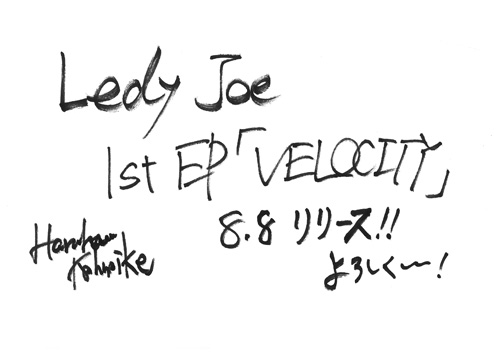 Ledy Joe
1st EP「VELOCITY」
8.8 リリース!!
よろしく〜!